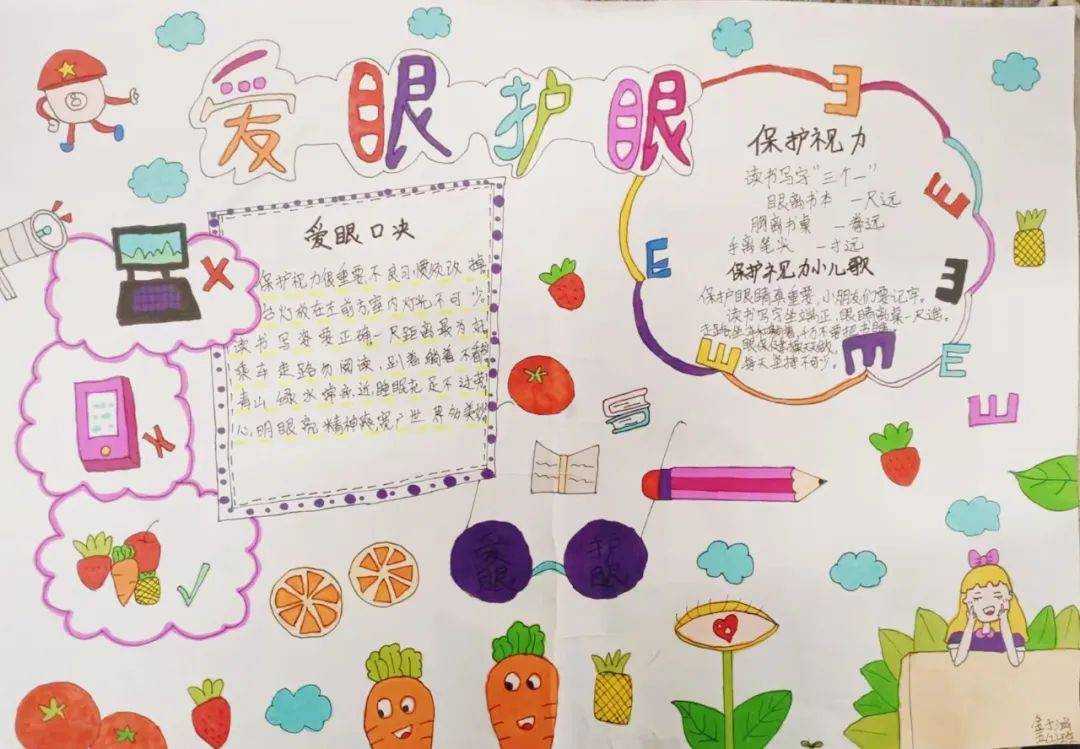 爱眼护眼
爱眼口决
保护视力很重要,不良习惯须改掉
台灯放在左前方,室内灯光不可少。
读书写姿要正确一尺距离最为好
乘车走路勿阅读,趴着躺着不
青山绿水常亲近,睡眠充足不
心明眼亮精神爽,宽广世界多美妙
保护视力
读书写字"三个一"
眼离书本 一尺远
胸离书桌 一拳远
手离笔尖 一寸远
保护视力小儿歌
保护眼睛真重要,小朋友们要记牢。
读书写字坐端正,眼睛离桌一尺遥。
眼保健操天天做,
每天坚持不可少。
E
E
E
E
E
E
E
E
爱眼
护眼